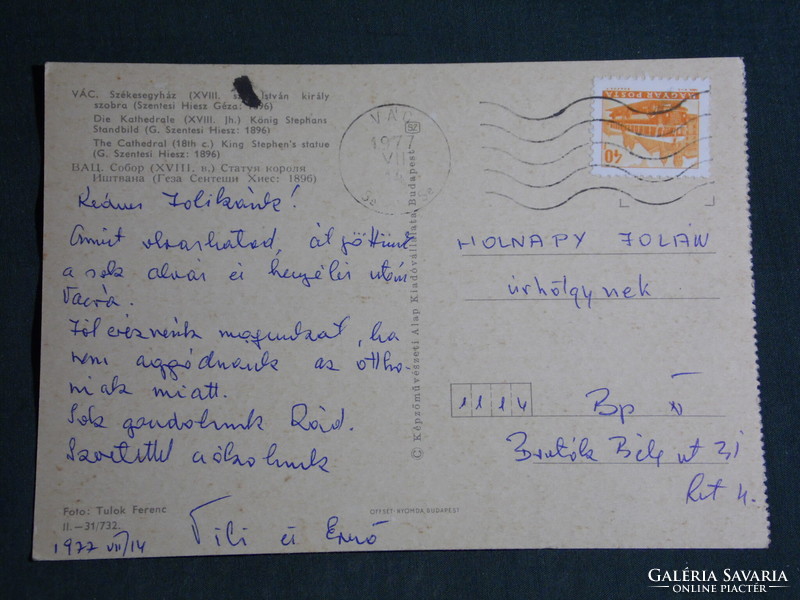 VÁC. Székesegyház (XVIII. sz.) István király
szobra (Szentesi Hiesz Géza: 1896)
Die Kathedrale (XVIII. Jh.) König Stephans
Standbild (G. Szentesi Hiesz: 1896)
The Cathedral (18th c.) King Stephen's statue
(G. Szentesi Hiesz: 1896)
ВАЦ. Собор (XVIII. в.) Статуя короля
Иштвана (Геза Сентеши Хиес: 1896)
VÁC
1977
VII
MAGYAR POSTA
40
Kedves Jolikánk!
Amint olvashatod, átjöttünk
a sok alvás és henyélés után
Vácra.
Jól éreznénk magunkat, ha
nem aggódnánk az ottho-
niak miatt.
Sok gondolunk Rád.
Szeretettel csókolunk
Vili és Ernő
1977 VII/14
Foto: Tulok Ferenc
II.—31/732.
OFFSET-NYOMDA, BUDAPEST
© Képzőművészeti Alap Kiadóvállalata, Budapest
HOLNAPY JOLÁN
úrhölgynek
1114
Bp XI
Bartók Béla út 31
GALÉRIA SAVARIA
ONLINE PIACTÉR